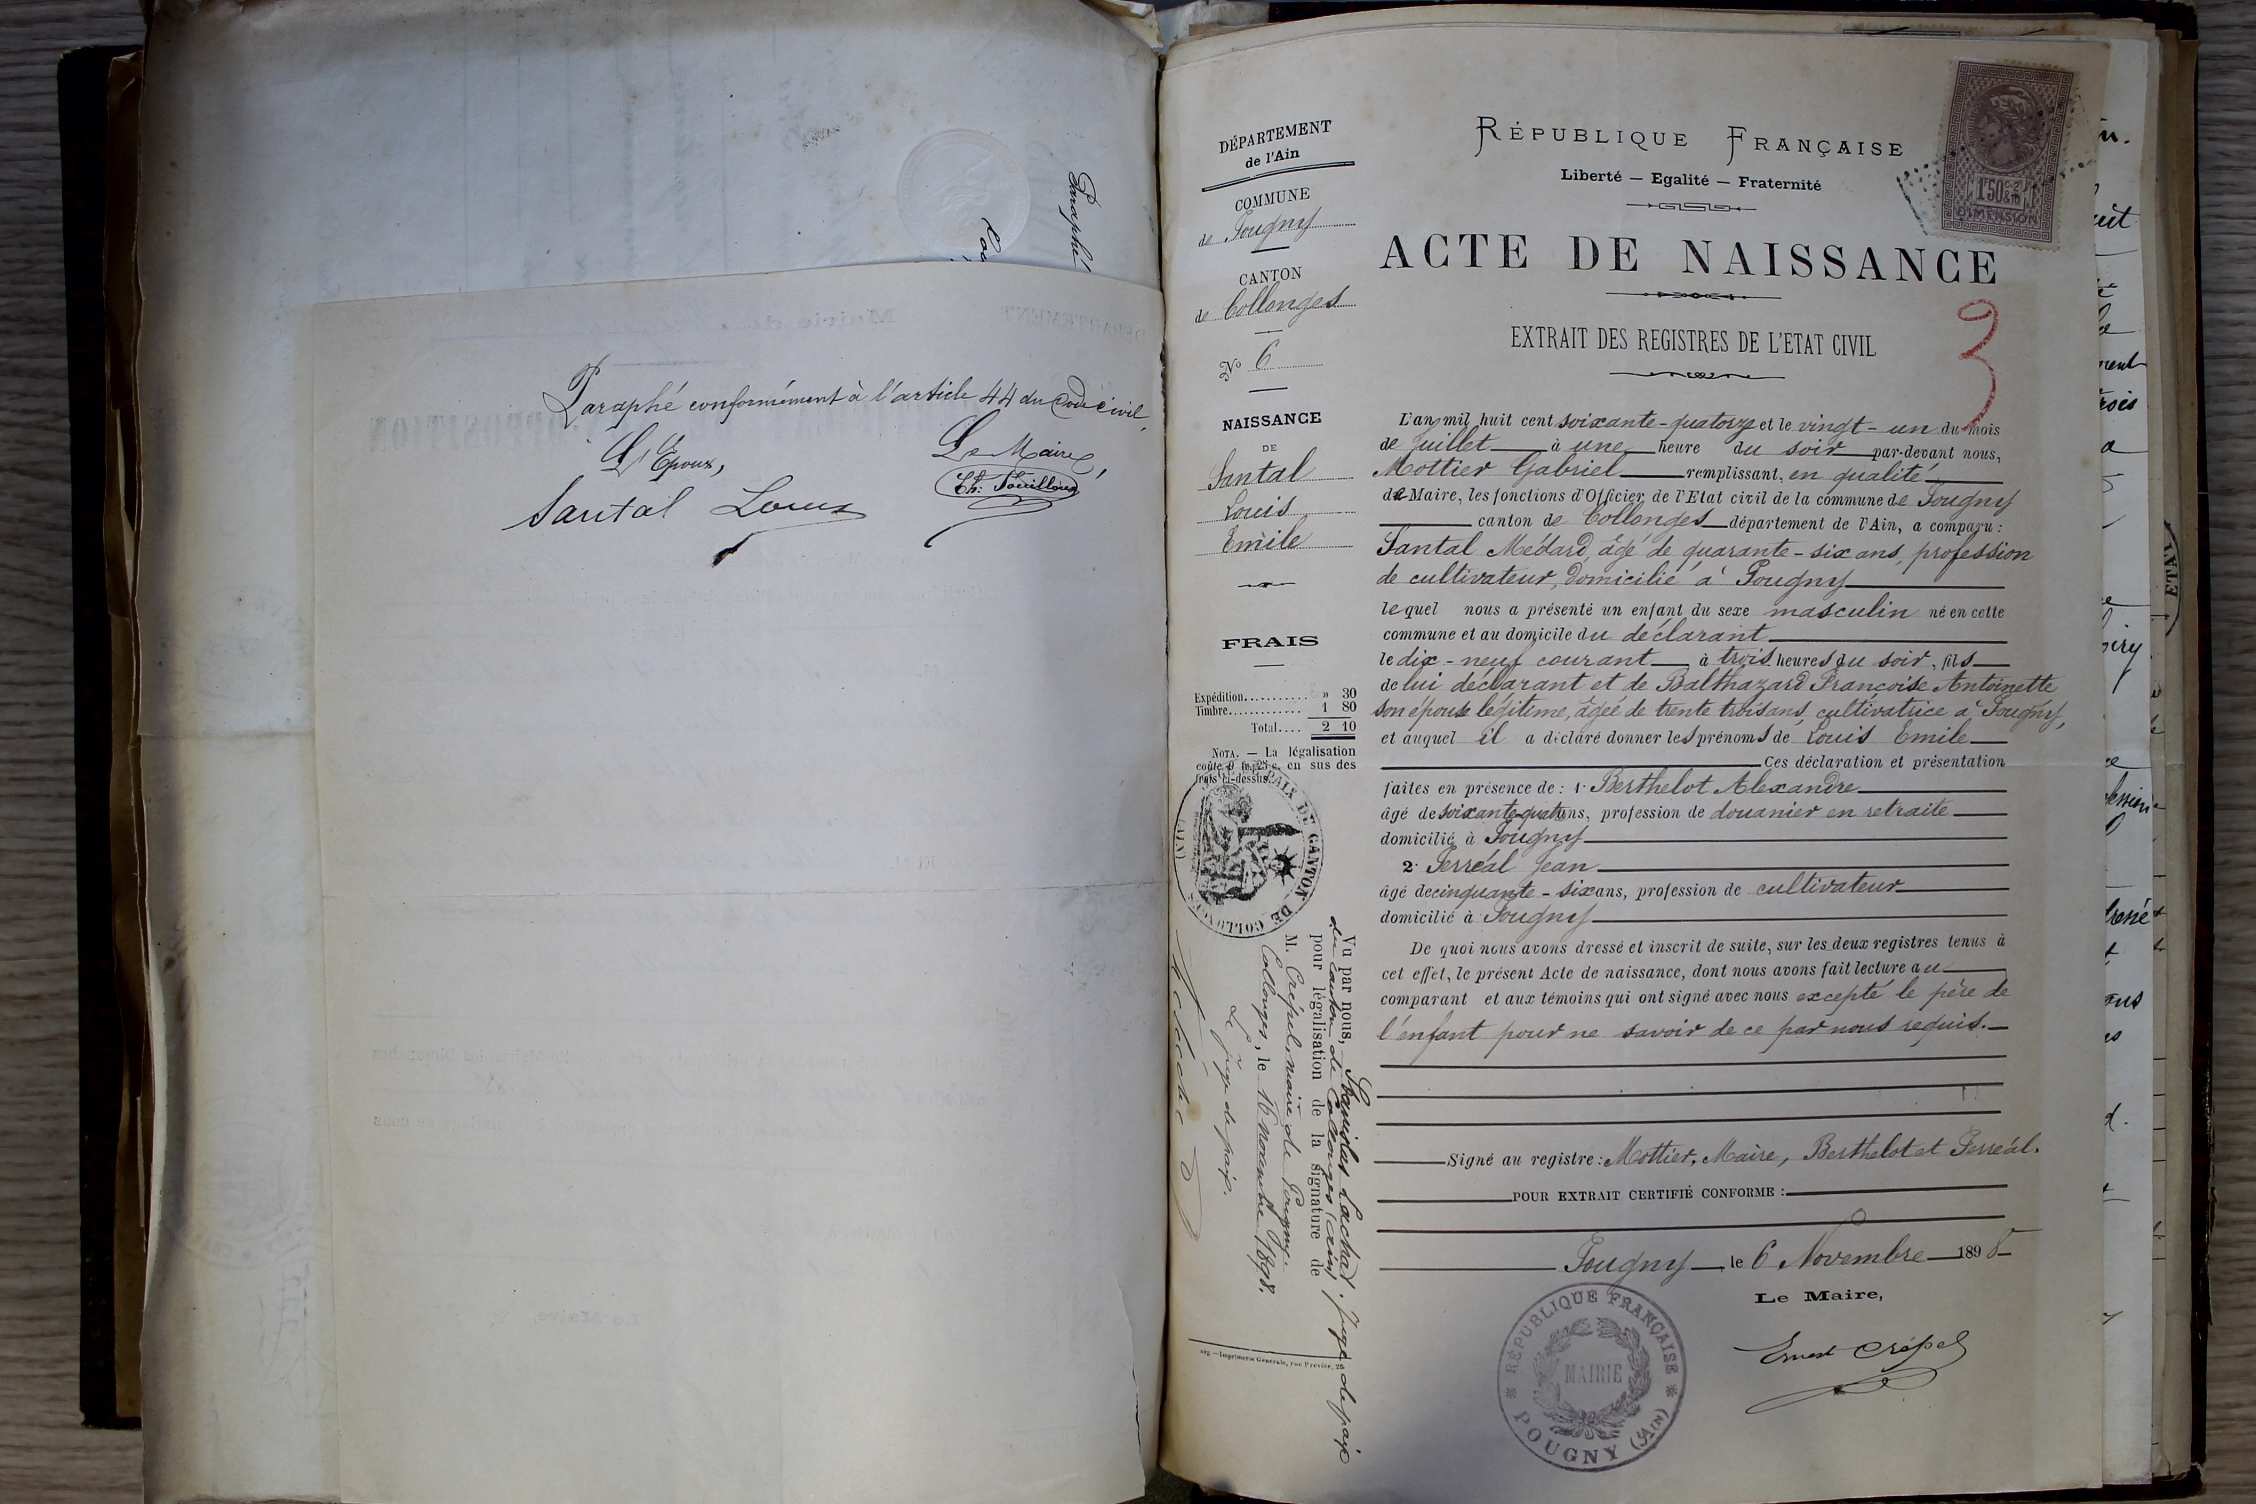 Paraphé
Paraphé conformément à l'article 44 du Code civil,
L'Époux,
Le Maire,
Santal Louis
DÉPARTEMENT
de l'Ain
COMMUNE
de Pougny
CANTON
de Collonges
No 6
NAISSANCE
DE
Santal
Louis
Emile
FRAIS
Expédition........... » 30
Timbre............. 1 80
Total.... 2 10
NOTA. — La légalisation
coûte 0 fr. 25 c. en sus des
frais ci-dessus.
PAIX DU CANTON DE COLLONGES (AIN)
Vu par nous, Stanislas Lachat, Juge de paix
du canton de Collonges (Ain)
pour légalisation de la signature de
M. Crépel, maire de Pougny.
Collonges, le 16 novembre 1898.
Le juge de paix.
Imprimerie Générale, rue
RÉPUBLIQUE FRANÇAISE
Liberté — Egalité — Fraternité
1f50c
DIMENSION
ACTE DE NAISSANCE
3
EXTRAIT DES REGISTRES DE L'ETAT CIVIL
L'an mil huit cent soixante-quatorze et le vingt-un du mois
de Juillet à une heure du soir par-devant nous,
Mottier Gabriel remplissant, en qualité
de Maire, les fonctions d'Officier de l'Etat civil de la commune de Pougny
canton de Collonges département de l'Ain, a comparu :
Santal Médard, âgé de quarante-six ans, profession
de cultivateur, domicilié à Pougny
lequel nous a présenté un enfant du sexe masculin né en cette
commune et au domicile du déclarant
le dix-neuf courant à trois heures du soir, fils
de lui déclarant et de Balthazard Françoise Antoinette
son épouse légitime, âgée de trente trois ans, cultivatrice à Pougny,
et auquel il a déclaré donner les prénoms de Louis Emile
Ces déclaration et présentation
faites en présence de : 1° Berthelot Alexandre
âgé de soixante-quatre ans, profession de douanier en retraite
domicilié à Pougny
2° Perréal Jean
âgé de cinquante-six ans, profession de cultivateur
domicilié à Pougny
De quoi nous avons dressé et inscrit de suite, sur les deux registres tenus à
cet effet, le présent Acte de naissance, dont nous avons fait lecture au
comparant et aux témoins qui ont signé avec nous excepté le père de
l'enfant pour ne savoir de ce par nous requis.
Signé au registre : Mottier, Maire, Berthelot et Perréal.
POUR EXTRAIT CERTIFIÉ CONFORME :
Pougny, le 6 Novembre 1898
Le Maire,
Ernest Crépel
RÉPUBLIQUE FRANÇAISE
MAIRIE
POUGNY (AIN)